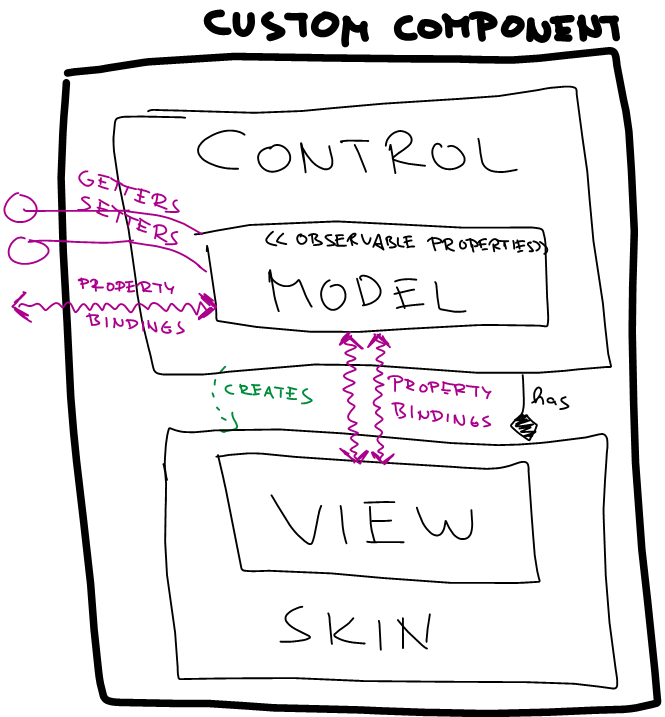 CUSTOM COMPONENT
CONTROL
GETTERS
SETTERS
<< OBSERVABLE PROPERTIES>>
MODEL
PROPERTY
BINDINGS
CREATES
PROPERTY
BINDINGS
has
VIEW
SKIN